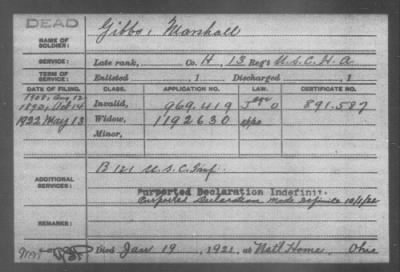 DEAD
Gibbs, Marshall
NAME OF SOLDIER:
SERVICE: Late rank, Co. H, 13 Reg't U.S.C.H.A.
TERM OF SERVICE: Enlisted , 1 Discharged , 1
DATE OF FILING. CLASS. APPLICATION NO. LAW. CERTIFICATE NO.
1908, Aug 12
1890, Oct 14 Invalid, 969.419 J 891.587
1922 May 13 Widow, 1192630
Minor,
ADDITIONAL SERVICES: B 121 U.S.C. Inf.
Purported Declaration Indefinite
Purported Declaration made definite 10/1/22
REMARKS:
Died Jan 19, 1921, at Nat'l Home, Ohio